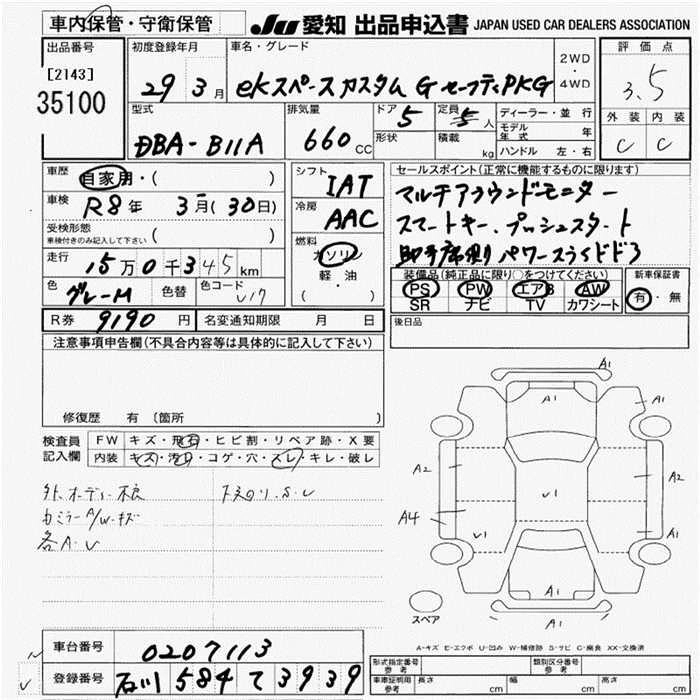 車内保管・守衛保管
JU 愛知 出品申込書 JAPAN USED CAR DEALERS ASSOCIATION
出品番号
[2143]
35100
初度登録年月
29 3月
車名・グレード
eKスペースカスタム G セーフティPKG
2WD
・
4WD
評価点
3.5
外装 内装
C C
型式
DBA-B11A
排気量
660cc
ドア 5
形状
定員 人
積載 kg
ディーラー・並行
モデル年式 年
ハンドル 左・右
車歴
自家用・( )
車検
R8年 3月(30日)
受検形態
車検付きのみ記入して下さい ( )
走行
15万0千345km
色
グレーM
色替
色コード
U17
シフト
IAT
冷房
AAC
燃料
ガソリン
軽・油
( )
セールスポイント(正常に機能するものに限ります)
マルチアラウンドモニター
スマートキー、プッシュスタート
助手席側パワースライドドア
装備品(純正品に限り○をつけてください)
PS PW エアB AW
SR ナビ TV カワシート
新車保証書
有・無
R券 9190円
名変通知期限 月 日
後日品
注意事項申告欄(不具合内容等は具体的に記入して下さい)
修復歴 有 (箇所 )
検査員
記入欄
FW キズ・飛石・ヒビ割・リペア跡・X要
内装 キズ・汚れ・コゲ・穴・スレ・キレ・破レ
外、ボーディー不良
カミラーA/W・キズ
各A・U
下廻り、S、U
A1
A1
A1
A2
A2
U1
A4
U1
A1
A1
A1
スペア
A-キズ E-エクボ U-凹み W-補修跡 S-サビ C-腐食 XX-交換済
車台番号
0207113
登録番号
石川 584 て 3939
形式指定番号 参考
類別区分番号 参考
車庫証明用 参考
長さ cm 幅 cm 高さ cm